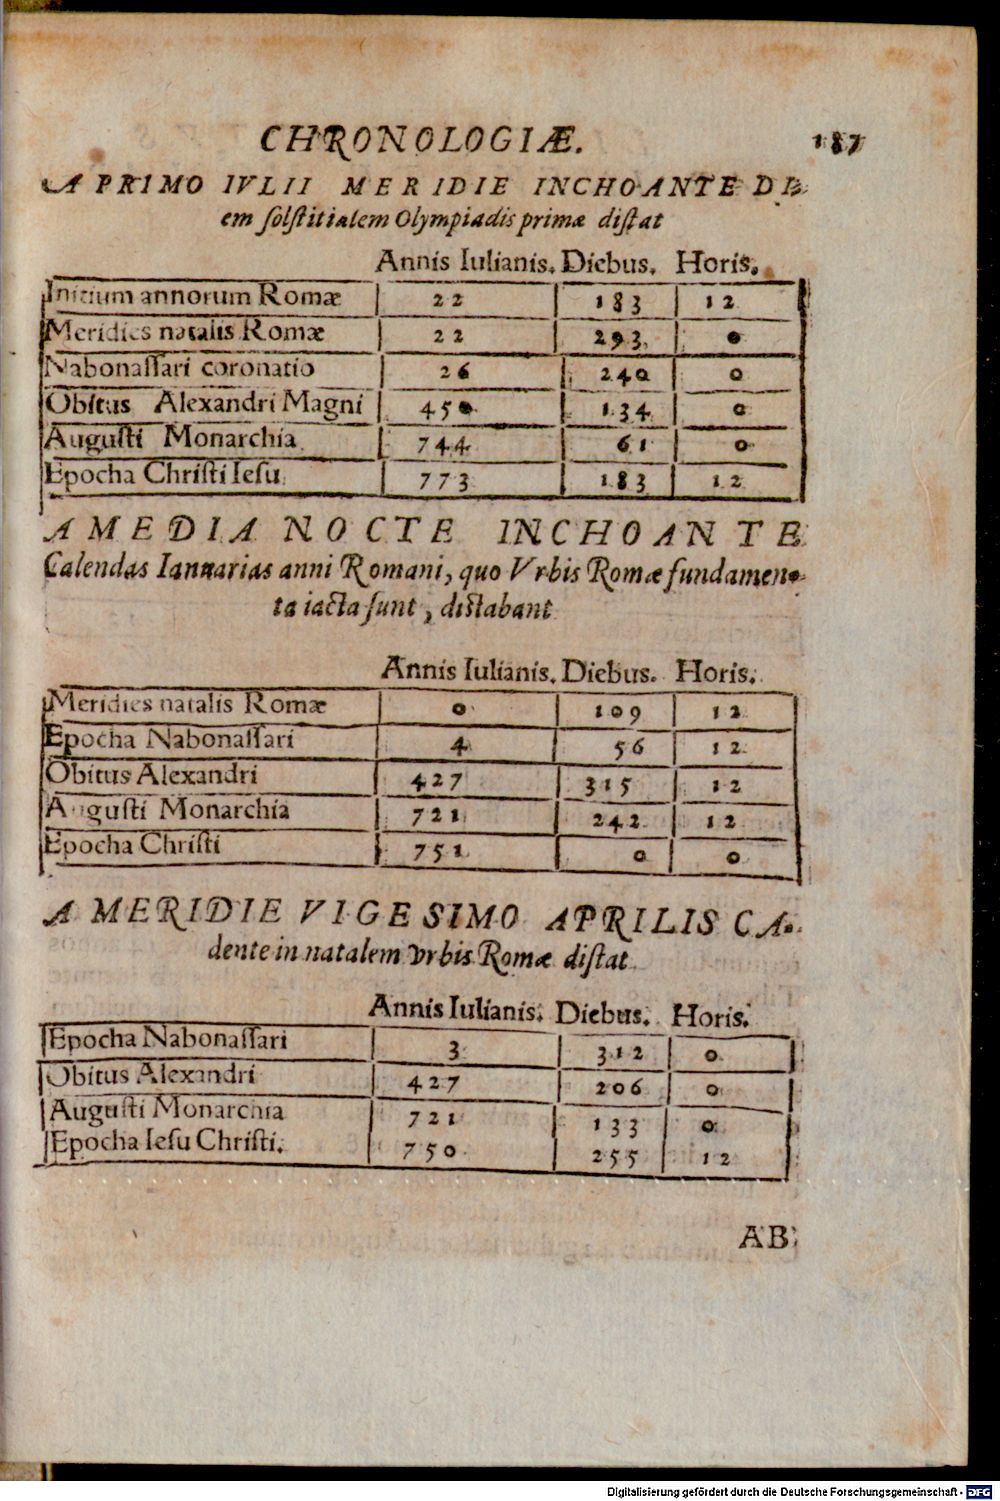 CHRONOLOGIÆ. 187
A PRIMO IVLII MERIDIE INCHOANTE DI-
em ſolſtitialem Olympiadis primæ diſtat
Annis Iulianis. Diebus. Horis.
Initium annorum Romæ 22 183 12
Meridies natalis Romæ 22 293 0
Nabonaſſari coronatio 26 240 0
Obitus Alexandri Magni 450 134 0
Auguſti Monarchia 744 61 0
Epocha Chriſti Ieſu 773 183 12
A MEDIA NOCTE INCHOANTE
Calendas Ianuarias anni Romani, quo Vrbis Romæ fundamen-
ta iacta ſunt, diſtabant
Annis Iulianis. Diebus. Horis.
Meridies natalis Romæ 0 109 12
Epocha Nabonaſſari 4 56 12
Obitus Alexandri 427 315 12
Auguſti Monarchia 721 242 12
Epocha Chriſti 751 0 0
A MERIDIE VIGESIMO APRILIS CA-
dente in natalem vrbis Romæ diſtat
Annis Iulianis. Diebus. Horis.
Epocha Nabonaſſari 3 312 0
Obitus Alexandri 427 206 0
Auguſti Monarchia 721 133 0
Epocha Ieſu Chriſti. 750 255 12
AB
Digitalisierung gefördert durch die Deutsche Forschungsgemeinschaft - DFG